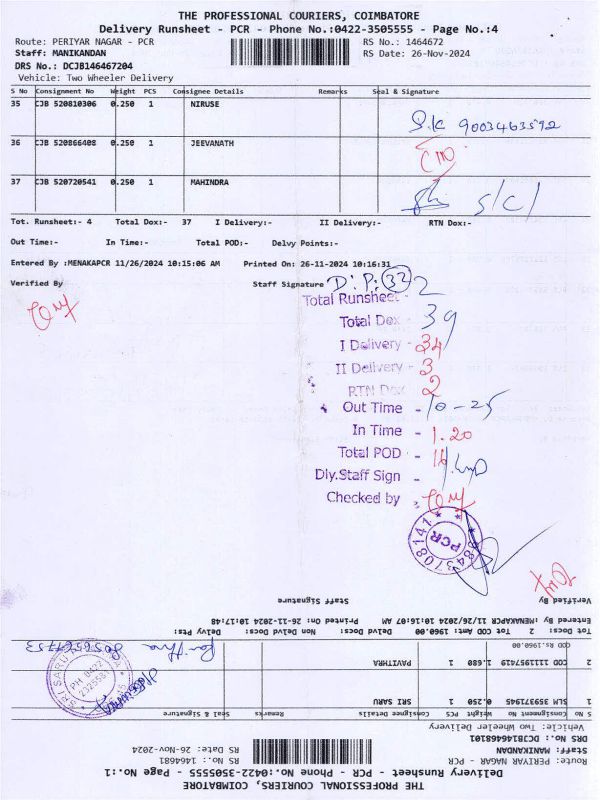 THE PROFESSIONAL COURIERS, COIMBATORE
Delivery Runsheet - PCR - Phone No.:0422-3505555 - Page No.:4
Route: PERIYAR NAGAR - PCR RS No.: 1464672
Staff: MANIKANDAN RS Date: 26-Nov-2024
DRS No.: DCJB146467204
Vehicle: Two Wheeler Delivery
S No Consignment No Weight PCS Consignee Details Remarks Seal & Signature
35 CJB 520810306 0.250 1 NIRUSE
S.K 9003463592
36 CJB 520866408 0.250 1 JEEVANATH
37 CJB 520720541 0.250 1 MAHINDRA
S/C/
Tot. Runsheet:- 4 Total Dox:- 37 I Delivery:- II Delivery:- RTN Dox:-
Out Time:- In Time:- Total POD:- Delvy Points:-
Entered By :MENAKAPCR 11/26/2024 10:15:06 AM Printed On: 26-11-2024 10:16:31
Verified By Staff Signature D.P: 32
Total Runsheet - 2
Total Dox - 39
I Delivery - 34
II Delivery - 3
RTN Dox - 2
Out Time - 10-25
In Time - 1.20
Total POD -
Dly.Staff Sign -
Checked by -
PCR
THE PROFESSIONAL COURIERS, COIMBATORE
Delivery Runsheet - PCR - Phone No.:0422-3505555 - Page No.:1
Route: PERIYAR NAGAR - PCR RS No.: 1464681
Staff: MANIKANDAN RS Date: 26-Nov-2024
DRS No.: DCJB146468101
Vehicle: Two Wheeler Delivery
S No Consignment No Weight PCS Consignee Details Remarks Seal & Signature
1 SLM 359371945 0.250 1 SRI SARU
2 COD 1111957419 1.680 1 PAVITHRA
COD Rs.1960.00
Pavithra
SRI SARU
PH 0422
Tot Docs: 2 Tot COD Amt: 1960.00 Delvd Docs: Non Delvd Docs: Delvy Pts:
Entered By :MENAKAPCR 11/26/2024 10:16:07 AM Printed On: 26-11-2024 10:17:48
Verified By Staff Signature